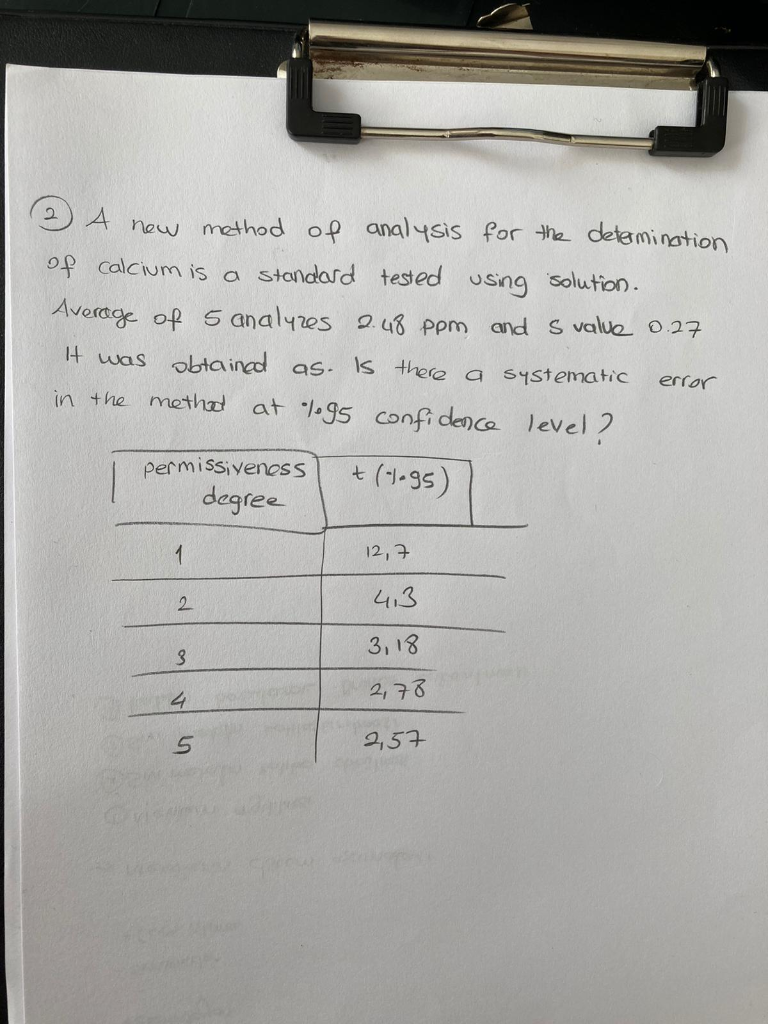 2 A new method of analysis for the determination
of calcium is a standard tested using solution.
Average of 5 analyzes 2.48 ppm and S value 0.27
It was obtained as. Is there a systematic error
in the method at %95 confidence level?
permissiveness degree t (%95)
1 12,7
2 4,3
3 3,18
4 2,78
5 2,57